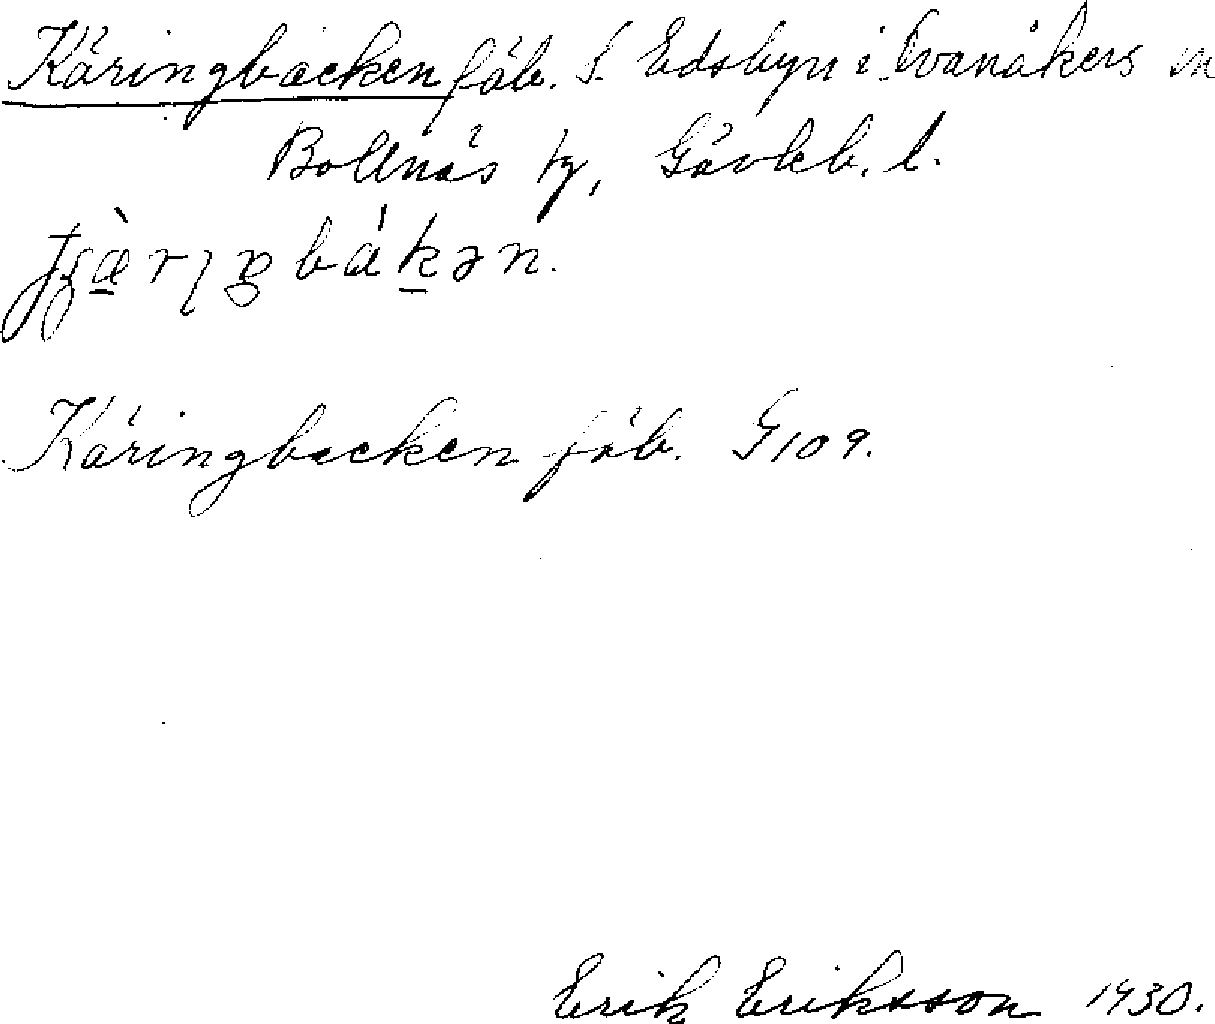 Käringbacken fäb. S. Edsbyn i Ovanåkers sn
Bollnäs tg, Gävleb. l.
bákən.
Käringbacken fäb. G109.
Erik Eriksson 1930.